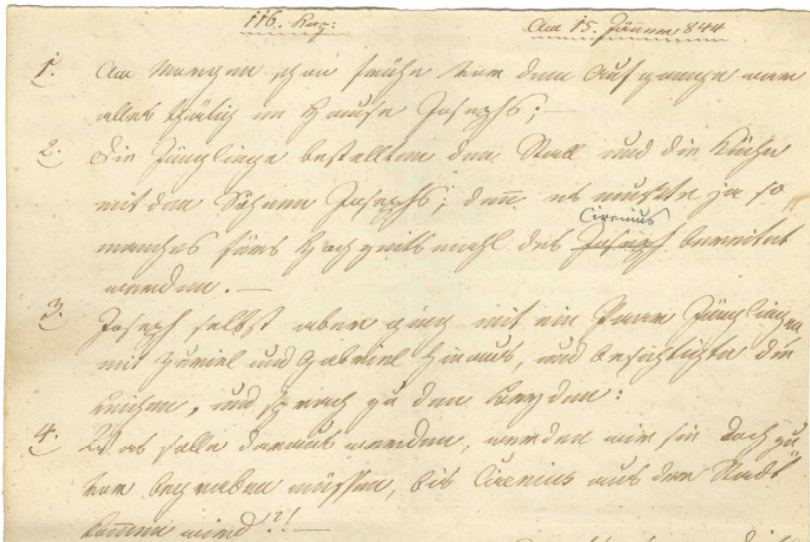 116. Kap: Am 15. Jänner 844
1. Am Morgen schon frühe vor dem Aufgange war
alles thätig im Hause Josephs; —
2. Die Jünglinge bestellten den Stall und die Küche
mit den Söhnen Josephs; den̄ es mußte ja so
Cirenius
manches fürs Hochzeitsmahl des Joseph bereitet
werden. —
3. Joseph selbst aber ging mit ein Paar Jünglingen,
mit Zuriel und Gabriel hinaus, und besichtigte die
Leichen, und sprach zu den beyden:
4. Was solle daraus werden, werden wir sie doch zu
vor begraben müssen, bis Cirenius aus der Stadt
kom̄en wird?! —